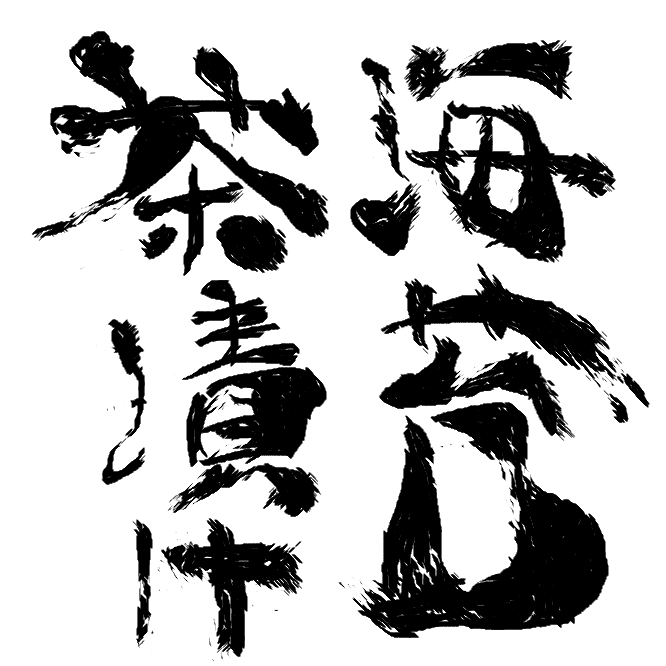 海苔
茶漬け